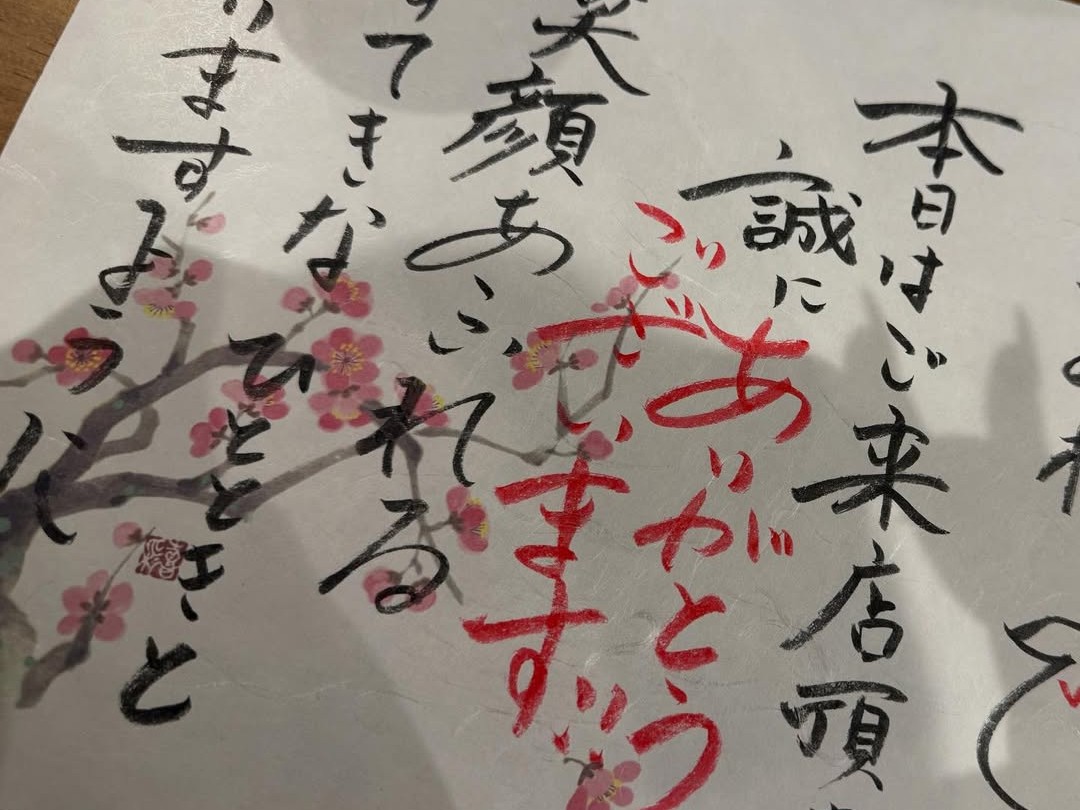 本日はご来店頂
誠に
ありがとう
ございます!!
笑顔あふれる
すてきな
ひとときと
りますように